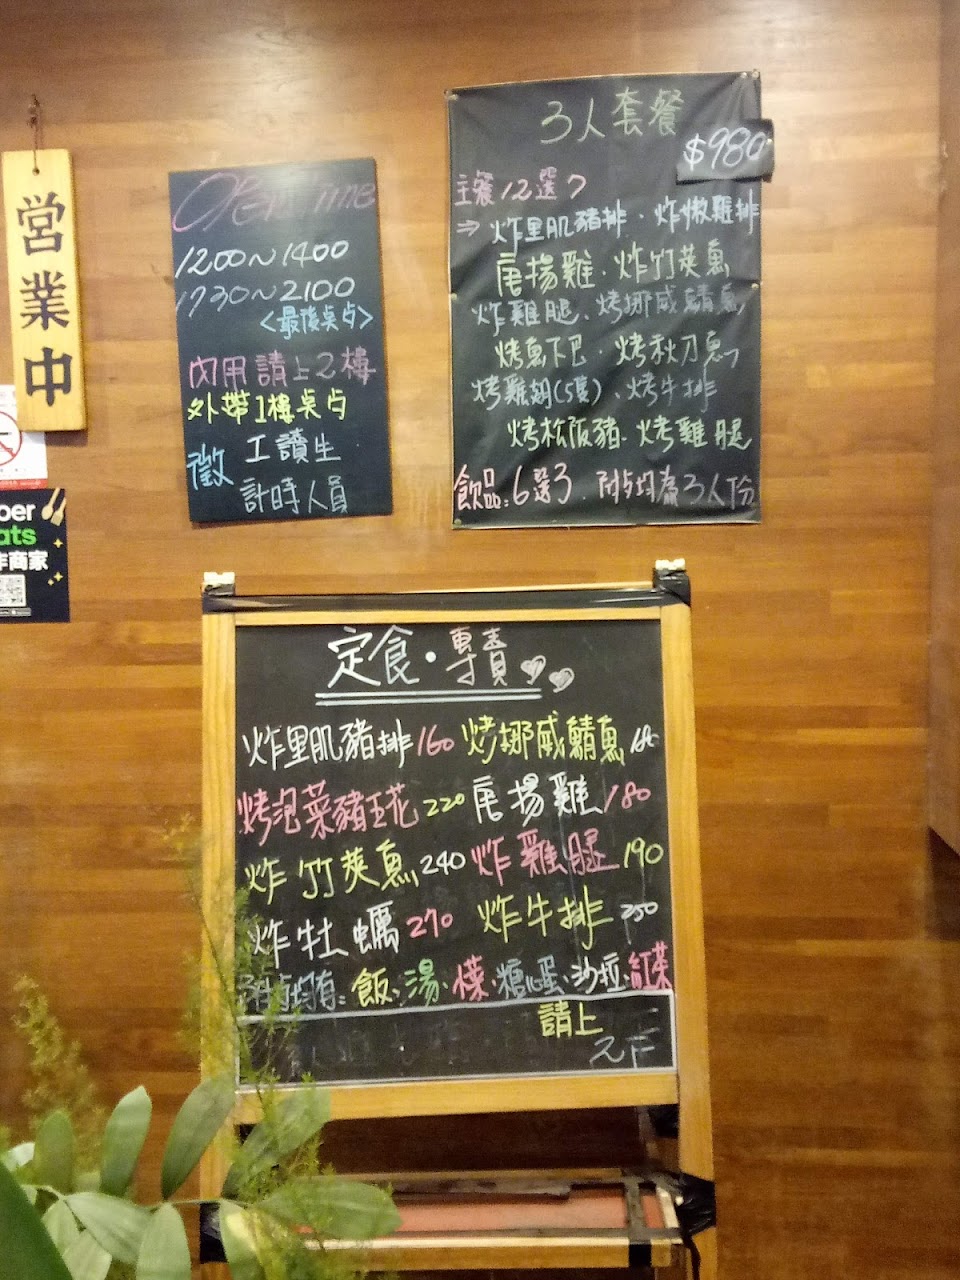 営業中
Open Time
1200~1400
1730~2100
<最後桌点>
內用請上2樓
外帶1樓桌点
徵 工讀生
計時人員
3人套餐
$980
主餐12選7
⇒炸里肌豬排．炸嫩雞排
唐揚雞．炸竹筴魚
炸雞腿、烤挪威鯖魚
烤魚下巴．烤秋刀魚
烤雞翅(5隻)、烤牛排
烤松阪豬．烤雞腿
飲品:6選3. 附点均為3人份
ber
ats
作商家
定食．專賣
炸里肌豬排160 烤挪威鯖魚
烤泡菜豬五花220 唐揚雞180
炸竹筴魚240 炸雞腿190
炸牡蠣270 炸牛排250
附点均有:飯、湯、樣、糖心蛋、沙拉、紅茶
請上